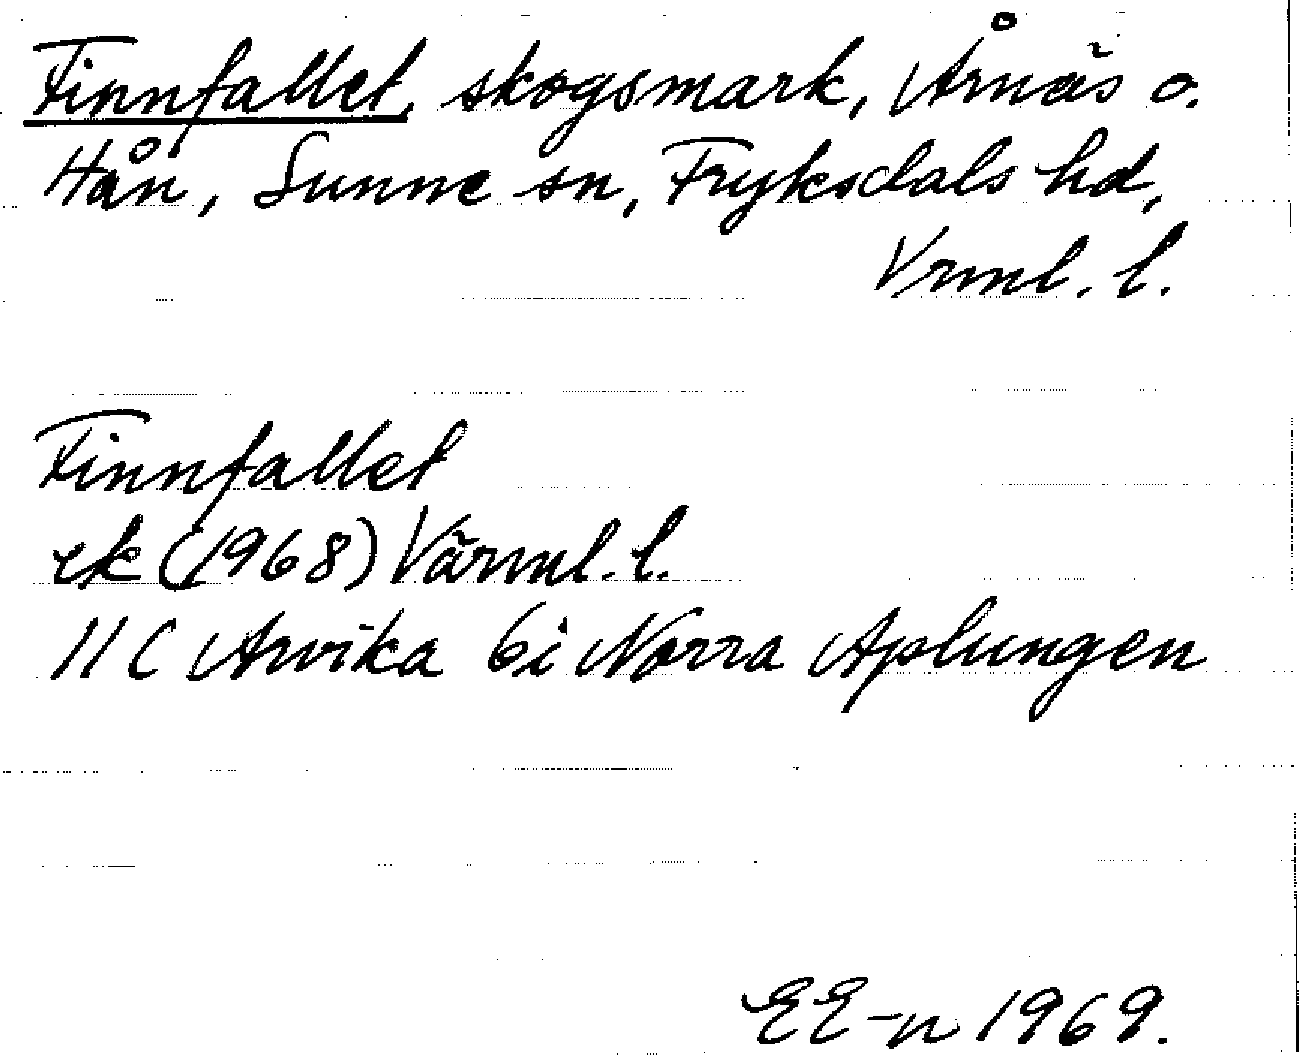 Finnfallet, skogsmark, Årnäs o.
Hån, Sunne sn, Fryksdals hd,
Vrml. l.
Finnfallet
ek (1968) Värml. l.
11 C Arvika 6i Norra Aplungen
EE-n 1969.